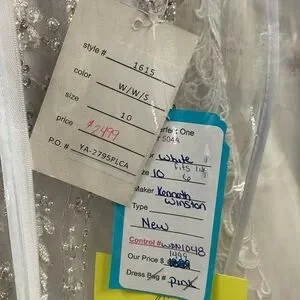 style # 1615
color W/W/S
size 10
price $2499
P.O. # YA-2795PLCA
One
504A
White
10 fits like 6
Maker Kenneth Winston
Type
New
Control # WDN1048
1499
Our Price $
Dress Bag # Pink